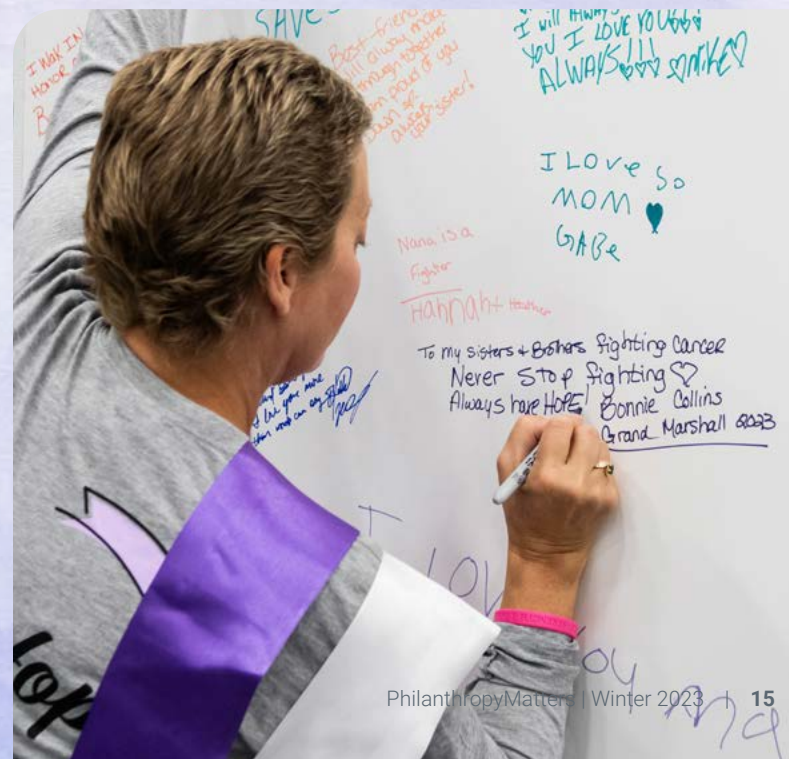 SAVES
I WAlK IN
HONOR
B
Best-friend
will always make
through together
proud of you
Down
always
your sister!
I will Always
YOU I LOVE YOU♡♡♡
ALWAYS!!! ♡♡♡ ♡MIKE♡
I LOve So
MOM
GABe
Nana is a
Fighter
Hannah + Heather
To my sisters + Brothers fighting cancer
Never Stop fighting ♡
Always have HOPE! Bonnie Collins
Grand Marshall 2023
more
than words can say
I
LOV
oy
top
PhilanthropyMatters | Winter 2023 | 15